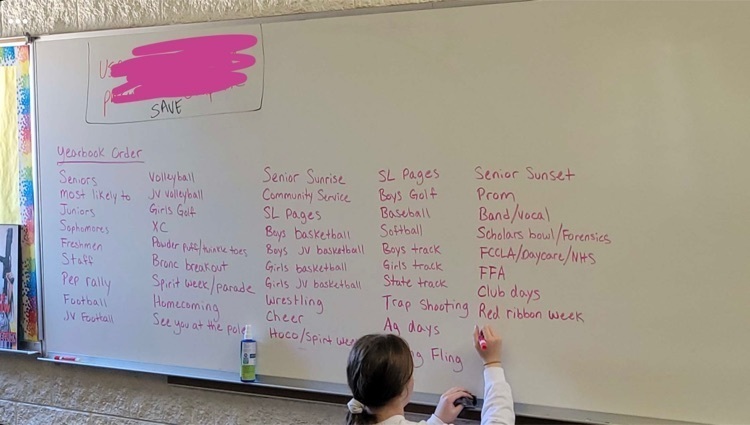 SAVE
Yearbook Order
Seniors
most likely to
Juniors
Sophomores
Freshmen
Staff
Pep rally
Football
JV Football
Volleyball
JV volleyball
Girls Golf
XC
Powder puff/twinkle toes
Bronc breakout
Spirit week/parade
Homecoming
See you at the pole
Senior Sunrise
Community Service
SL Pages
Boys basketball
Boys JV basketball
Girls basketball
Girls JV basketball
Wrestling
Cheer
Hoco/Spirit
SL Pages
Boys Golf
Baseball
Softball
Boys track
Girls track
State track
Trap Shooting
Ag days
Fling
Senior Sunset
Prom
Band/vocal
Scholars bowl/Forensics
FCCLA/Daycare/NHS
FFA
Club days
Red ribbon week